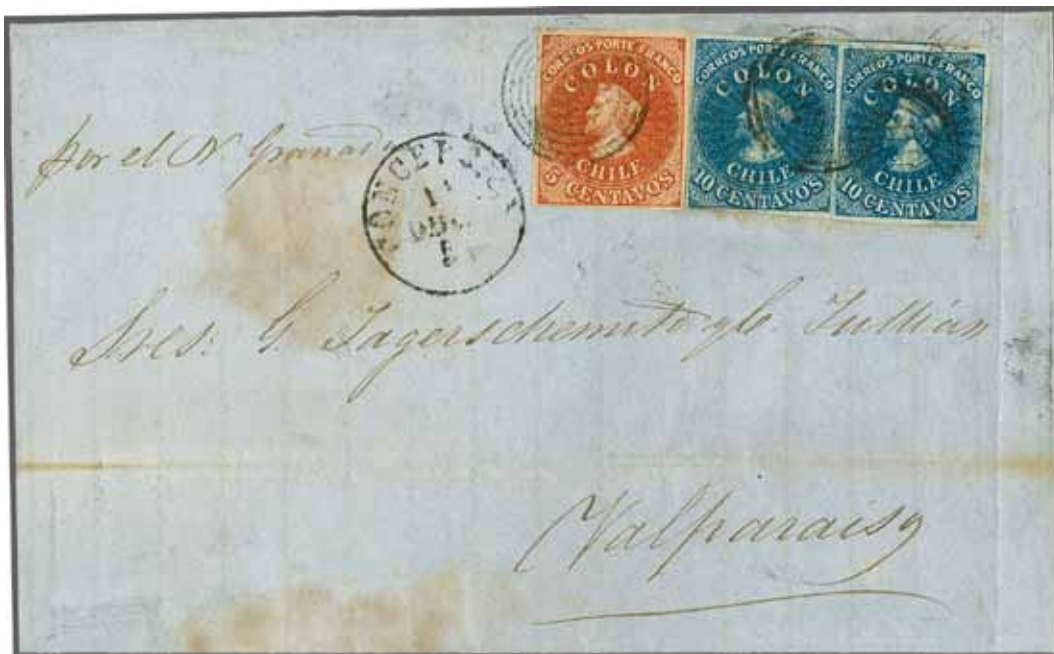 CORREOS PORTE FRANCO
COLON
CHILE
5 CENTAVOS
CORREOS PORTE FRANCO
COLON
CHILE
10 CENTAVOS
CORREOS PORTE FRANCO
COLON
CHILE
10 CENTAVOS
por el N. Granada
CONCEPCION
Sres: G.
Valparaiso